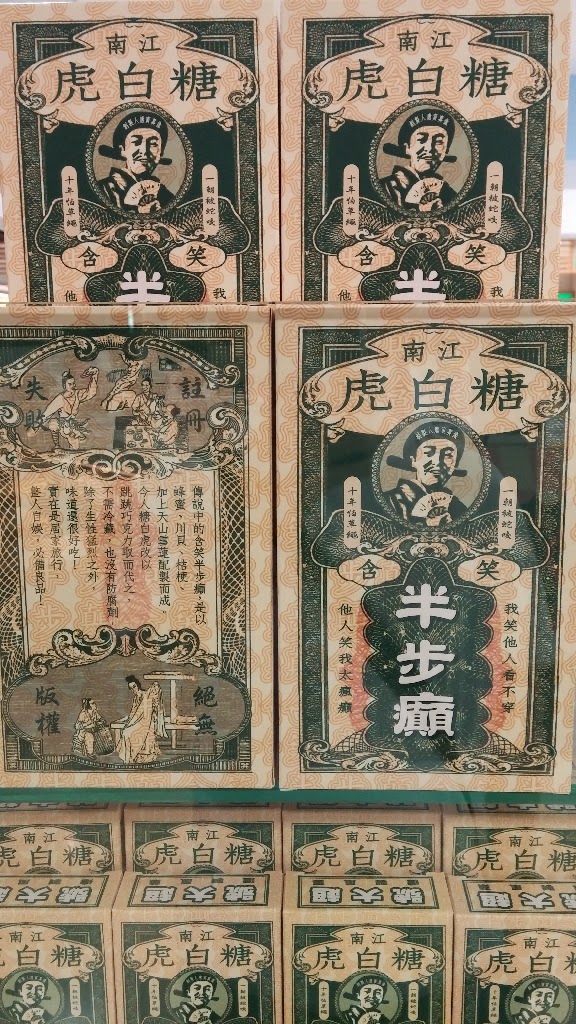 江南
糖白虎
一朝被蛇咬
十年怕草繩
笑
含
半
我
他
江南
糖白虎
一朝被蛇咬
十年怕草繩
笑
含
半
我
他
註冊
失敗
傳說中的含笑半步癲,是以
蜂蜜、川貝、桔梗、
加上天山雪蓮配製而成。
今人糖白虎改以
跳跳巧克力取而代之,
不需冷藏,也沒有防腐劑
除了生性猛烈之外,
味道還很好吃!
實在是居家旅行,
人自娛,必備良品!
絕無
版權
江南
糖白虎
一朝被蛇咬
十年怕草繩
笑
含
半步癲
我笑他人看不穿
他人笑我太瘋癲
江南
糖白虎
江南
糖白虎
江南
糖白虎
江南
糖白虎
超大號
超大號
江南
糖白虎
江南
糖白虎
江南
糖白虎
江南
糖白虎